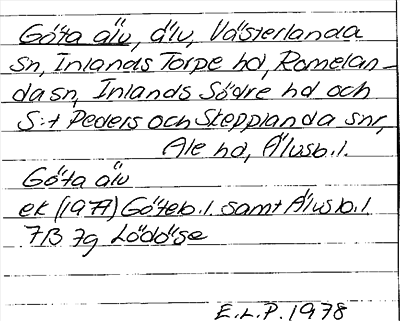 Göta älv, älv, Västerlanda
sn, Inlands Torpe hd, Romelan-
da sn, Inlands Södre hd och
S:t Peders och Skepplanda snr,
Ale hd, Älvsb.l.
Göta älv
ek (1977) Göteb.l. samt Älvsb.l.
7B 7g Lödöse
E.L.P. 1978